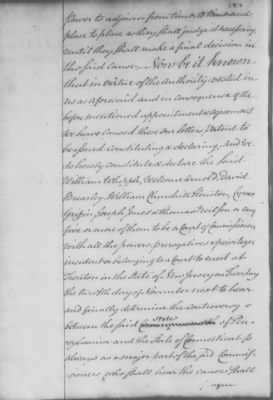 power to adjourn from time to time and
place to place as they shall judge necessary
until they shall make a final decision in
the said cause, Now be it known
that in virtue of the Authority vested in
us as aforesaid and in consequence of the
before mentioned appointment & agreement
We have caused these our letters patent to
be issued constituting & declaring And We
do hereby constitute & declare the said
William Whipple, Welcome Arnold, David
Brearley, William Churchill Houston, Cyrus
Griffin, Joseph Jones & Thomas Nelson or any
five or more of them to be a Court of Commissioners
with all the powers, prerogatives & privileges
incident or belonging to a Court to meet at
Trenton in the State of New Jersey on Tuesday
the twelfth day of November next to hear
and finally determine the controversy
between the said Commonwealth State of Pen
sylvania and the State of Connecticut so
always as a major part of the said Commis
sioners who shall hear the cause, shall
agree